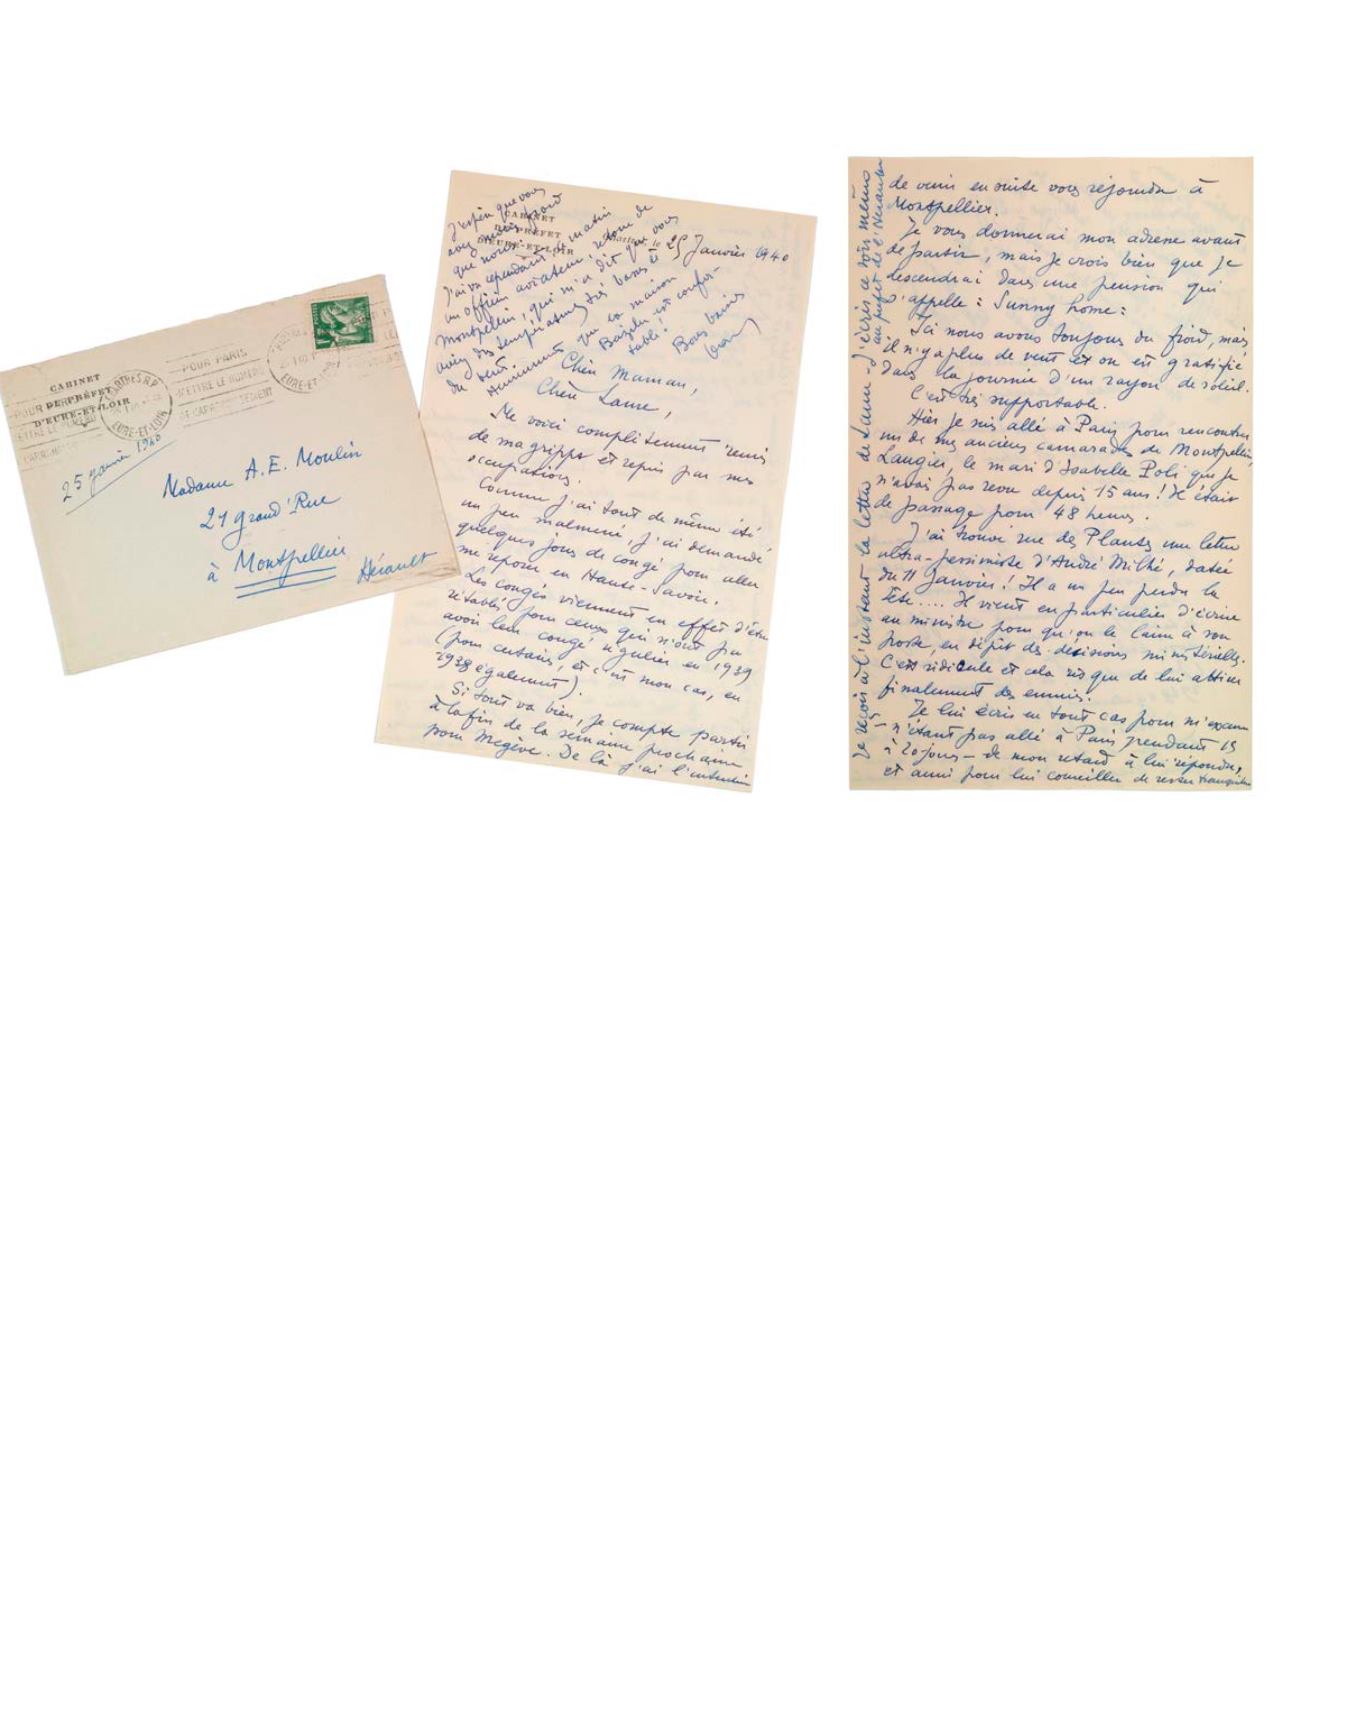 CABINET
DU PRÉFET
D'EURE-ET-LOIR
POUR PARIS
METTRE LE NUMÉRO
CHARTRES R.P.
EURE-ET-LOIR
25 janvier 1940
Madame A. E. Moulin
21 grand'Rue
à Montpellier
Hérault
CABINET
DU PRÉFET
D'EURE-ET-LOIR
Chartres, le 25 Janvier 1940
J'espère que vous
avez moins froid
que nous.
J'ai vu cependant ce matin
un officier aviateur retour de
Montpellier, qui m'a dit que vous
aviez des températures très basses et
du vent.
Heureusement que la maison
Bazille est confor-
table !
Bons baisers
Jean
Chère Maman,
Chère Laure,
Me voici complètement remis
de ma grippe et repris par mes
occupations.
Comme j'ai tout de même été
un peu malmené, j'ai demandé
quelques jours de congé pour aller
me reposer en Haute-Savoie.
Les congés viennent en effet d'être
rétablis pour ceux qui n'ont pu
avoir leur congé régulier en 1939
(pour certains, et c'est mon cas, en
1938 également).
Si tout va bien, je compte partir
à la fin de la semaine prochaine
pour Megève. De là j'ai l'intention
de venir ensuite vous rejoindre à
Montpellier.
Je vous donnerai mon adresse avant
de partir, mais je crois bien que je
descendrai dans une pension qui
s'appelle : Sunny home :
Ici nous avons toujours du froid, mais
il n'y a plus de vent et on est gratifié
dans la journée d'un rayon de soleil.
C'est très supportable.
Hier je suis allé à Paris pour rencontrer
un de mes anciens camarades de Montpellier,
Laugier, le mari d'Isabelle Poli que je
n'avais pas revu depuis 15 ans ! Il était
de passage pour 48 heures.
J'ai trouvé rue des Plantes une lettre
ultra-pessimiste d'André Milhé, datée
du 11 Janvier ! Il a un peu perdu la
tête.... Il vient en particulier d'écrire
au ministre pour qu'on le laisse à son
poste, en dépit des décisions ministérielles.
C'est ridicule et cela risque de lui attirer
finalement des ennuis.
Je lui écris en tout cas pour m'excuser
- n'étant pas allé à Paris pendant 15
à 20 jours - de mon retard à lui répondre,
et aussi pour lui conseiller de rester tranquille
Je reçois à l'instant la lettre de Laure - J'écris ce soir même
au préfet de l'Hérault